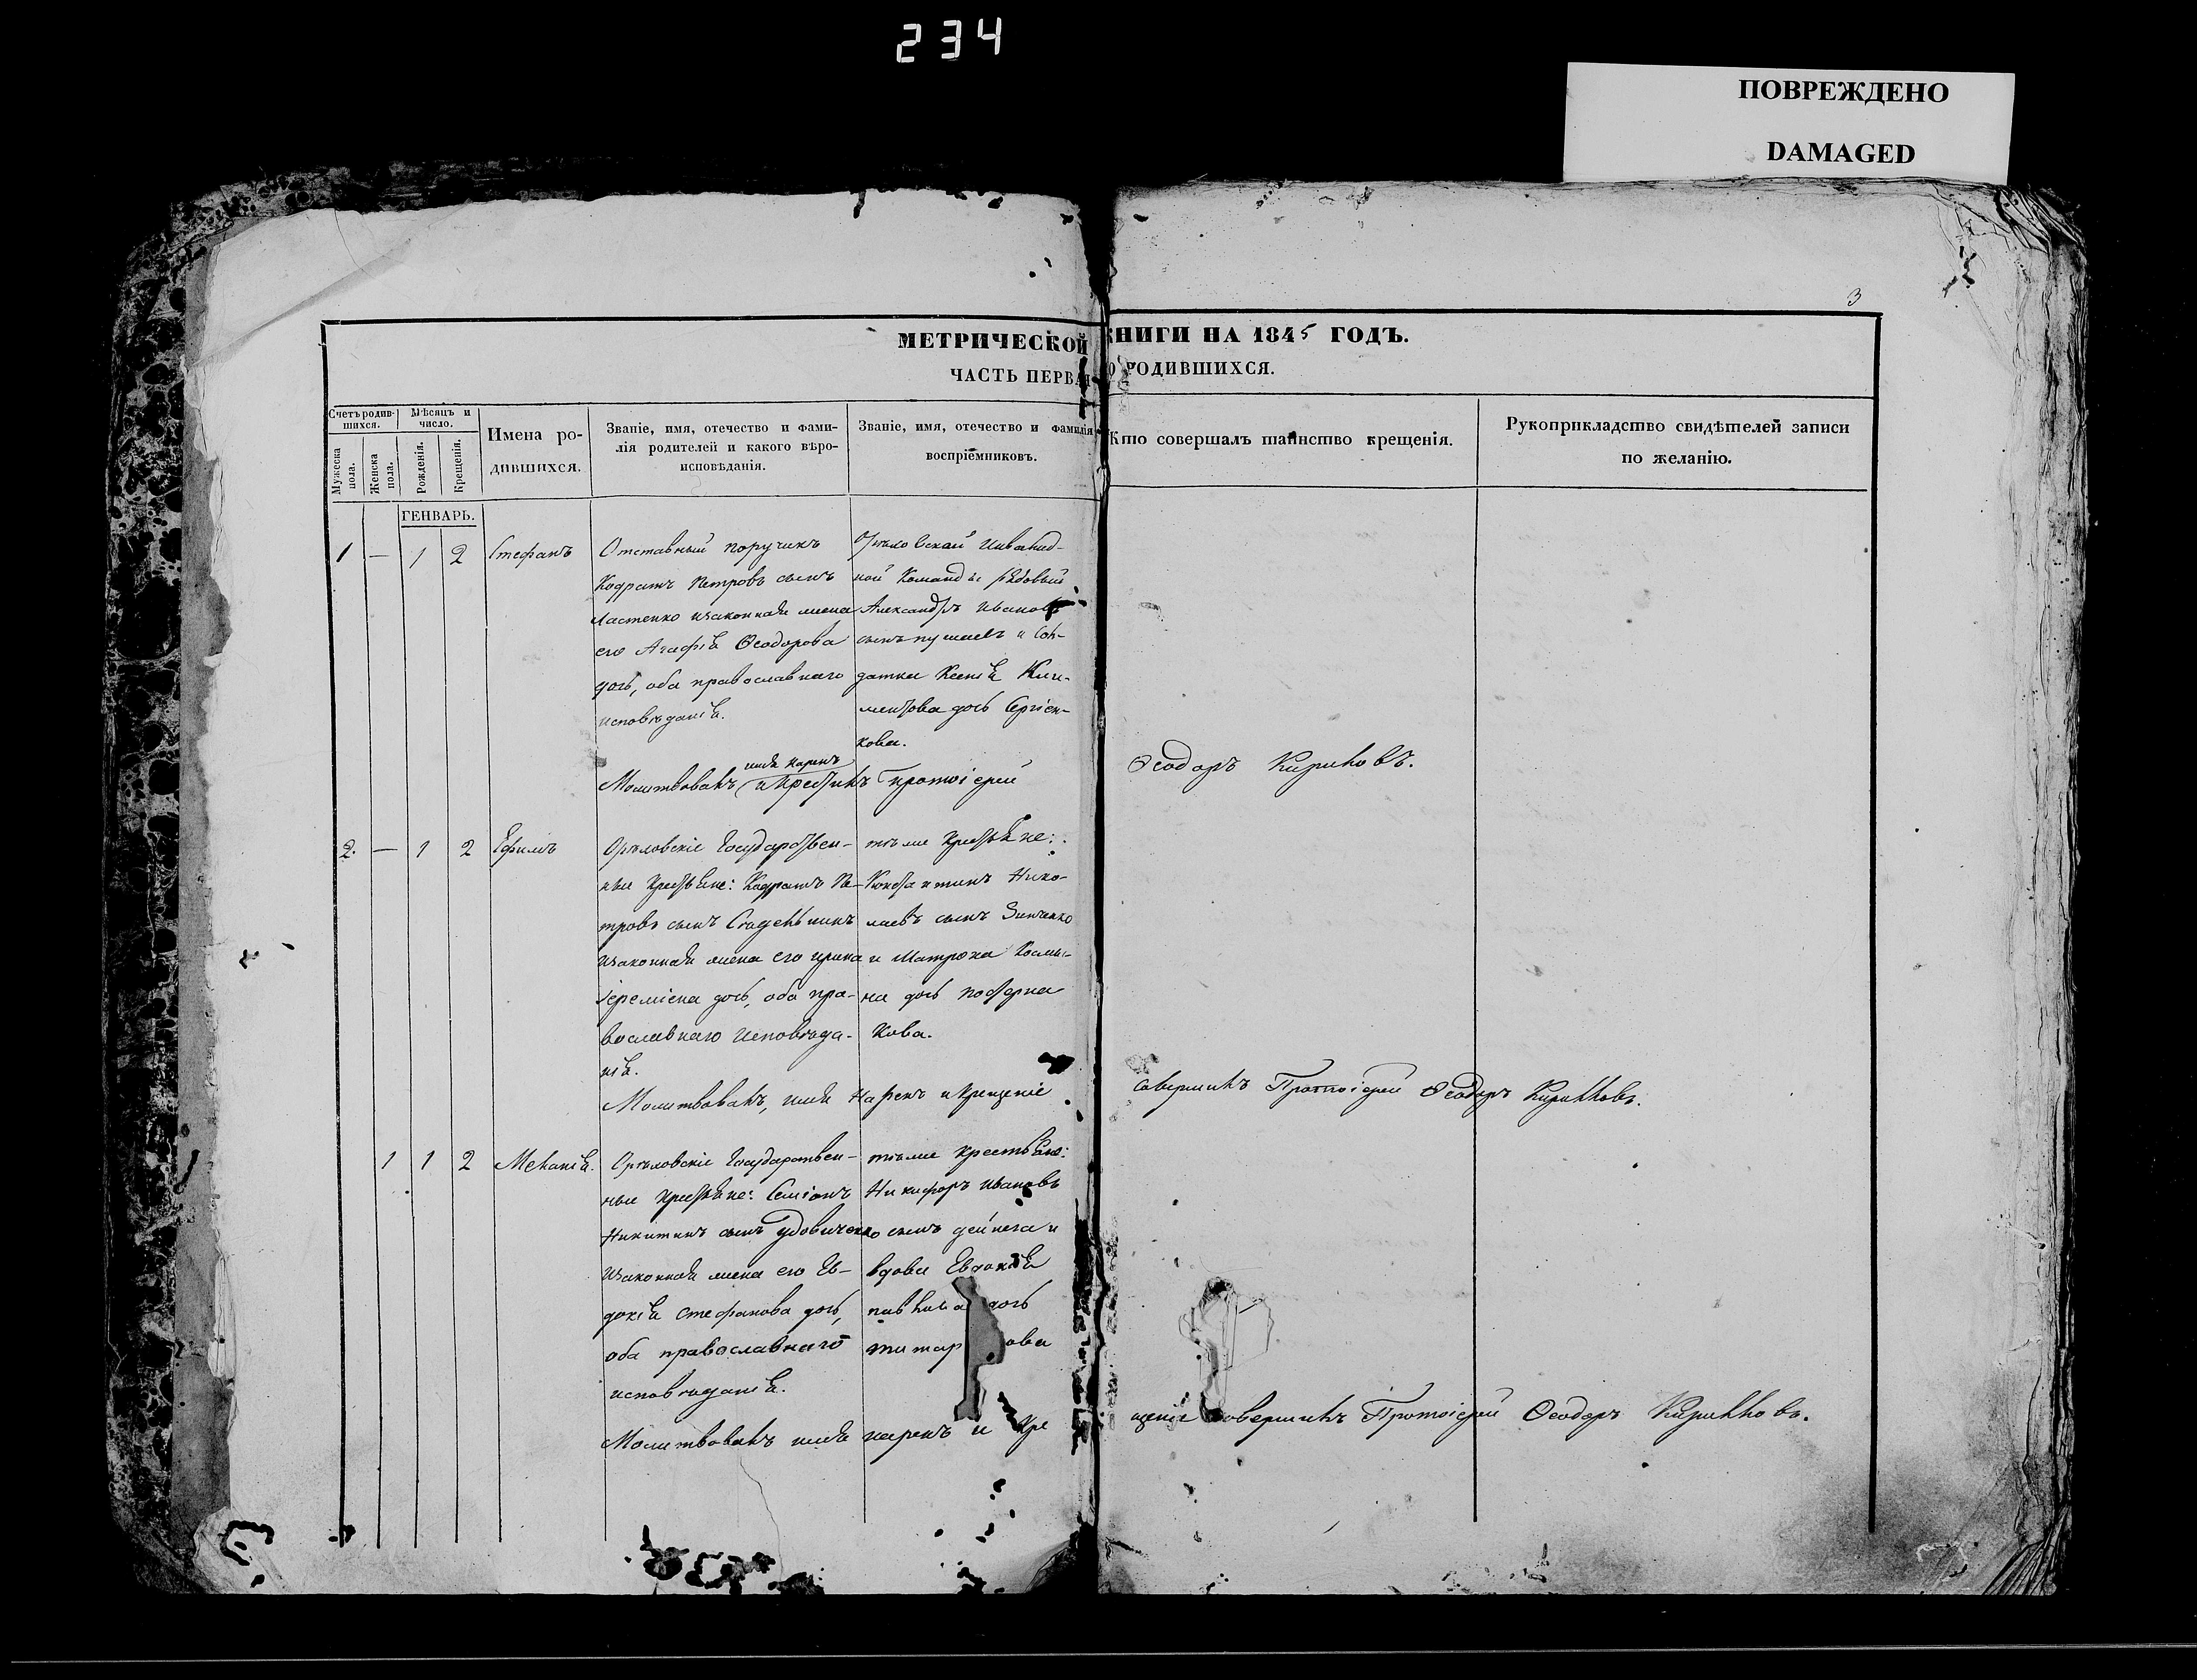 234
ПОВРЕЖДЕНО
DAMAGED
3
МЕТРИЧЕСКОЙ КНИГИ НА 1845 ГОДЪ.
ЧАСТЬ ПЕРВАЯ О РОДИВШИХСЯ.
Счетъ родив-
шихся.
Мужеска пола.
Женска пола.
Мѣсяцъ и
число.
Рожденія.
Крещенія.
Имена ро-
дившихся.
Званіе, имя, отечество и фами-
лія родителей и какого вѣро-
исповѣданія.
Званіе, имя, отечество и фамилія
воспріемниковъ.
Кто совершалъ таинство крещенія.
Рукоприкладство свидѣтелей записи
по желанію.
ГЕНВАРЬ.
1 — 1 2 Стефанъ
Отставный поручикъ
Кодратъ Петровъ сынъ
Ластенко изаконная жена
его Агафія Ѳеодорова
дочь, оба православнаго
исповѣданія.
Инвалид-
ной Команды рядовый
Александръ Ивановъ
сынъ и Сол-
датка Ксенія Кли-
ментова дочь Сергіен-
кова.
имя нарекъ
Молитвовалъ и крестилъ протоіерей Ѳеодоръ Кириловъ.
2. — 1 2 Ефимъ
Орѣловскіе Государствен-
ные крестьяне: Кодратъ Пе-
тровъ сынъ
изаконная жена его Ирина
Іереміева дочь, оба пра-
вославнаго исповѣда-
нія.
тѣже крестьяне:
Константинъ Нико-
лаевъ сынъ Зинченко
и Матрона Косьми-
на дочь
кова.
Молитвовалъ, имя нарекъ и крещеніе совершилъ Протоіерей Ѳеодоръ Кирилловъ.
1 1 2 Меланія.
Орѣловскіе Государствен-
ные крестьяне: Семіонъ
Никитинъ сынъ Удовиченко
изаконная жена его Ев-
докія Стефанова дочь,
оба православнаго
исповѣданія.
тѣже крестьяне:
Никифоръ Ивановъ
сынъ Дейнега и
вдова Евдокія
Павлова дочь
Молитвовалъ имя нарекъ и крещеніе совершилъ Протоіерей Ѳеодоръ Кирилловъ.